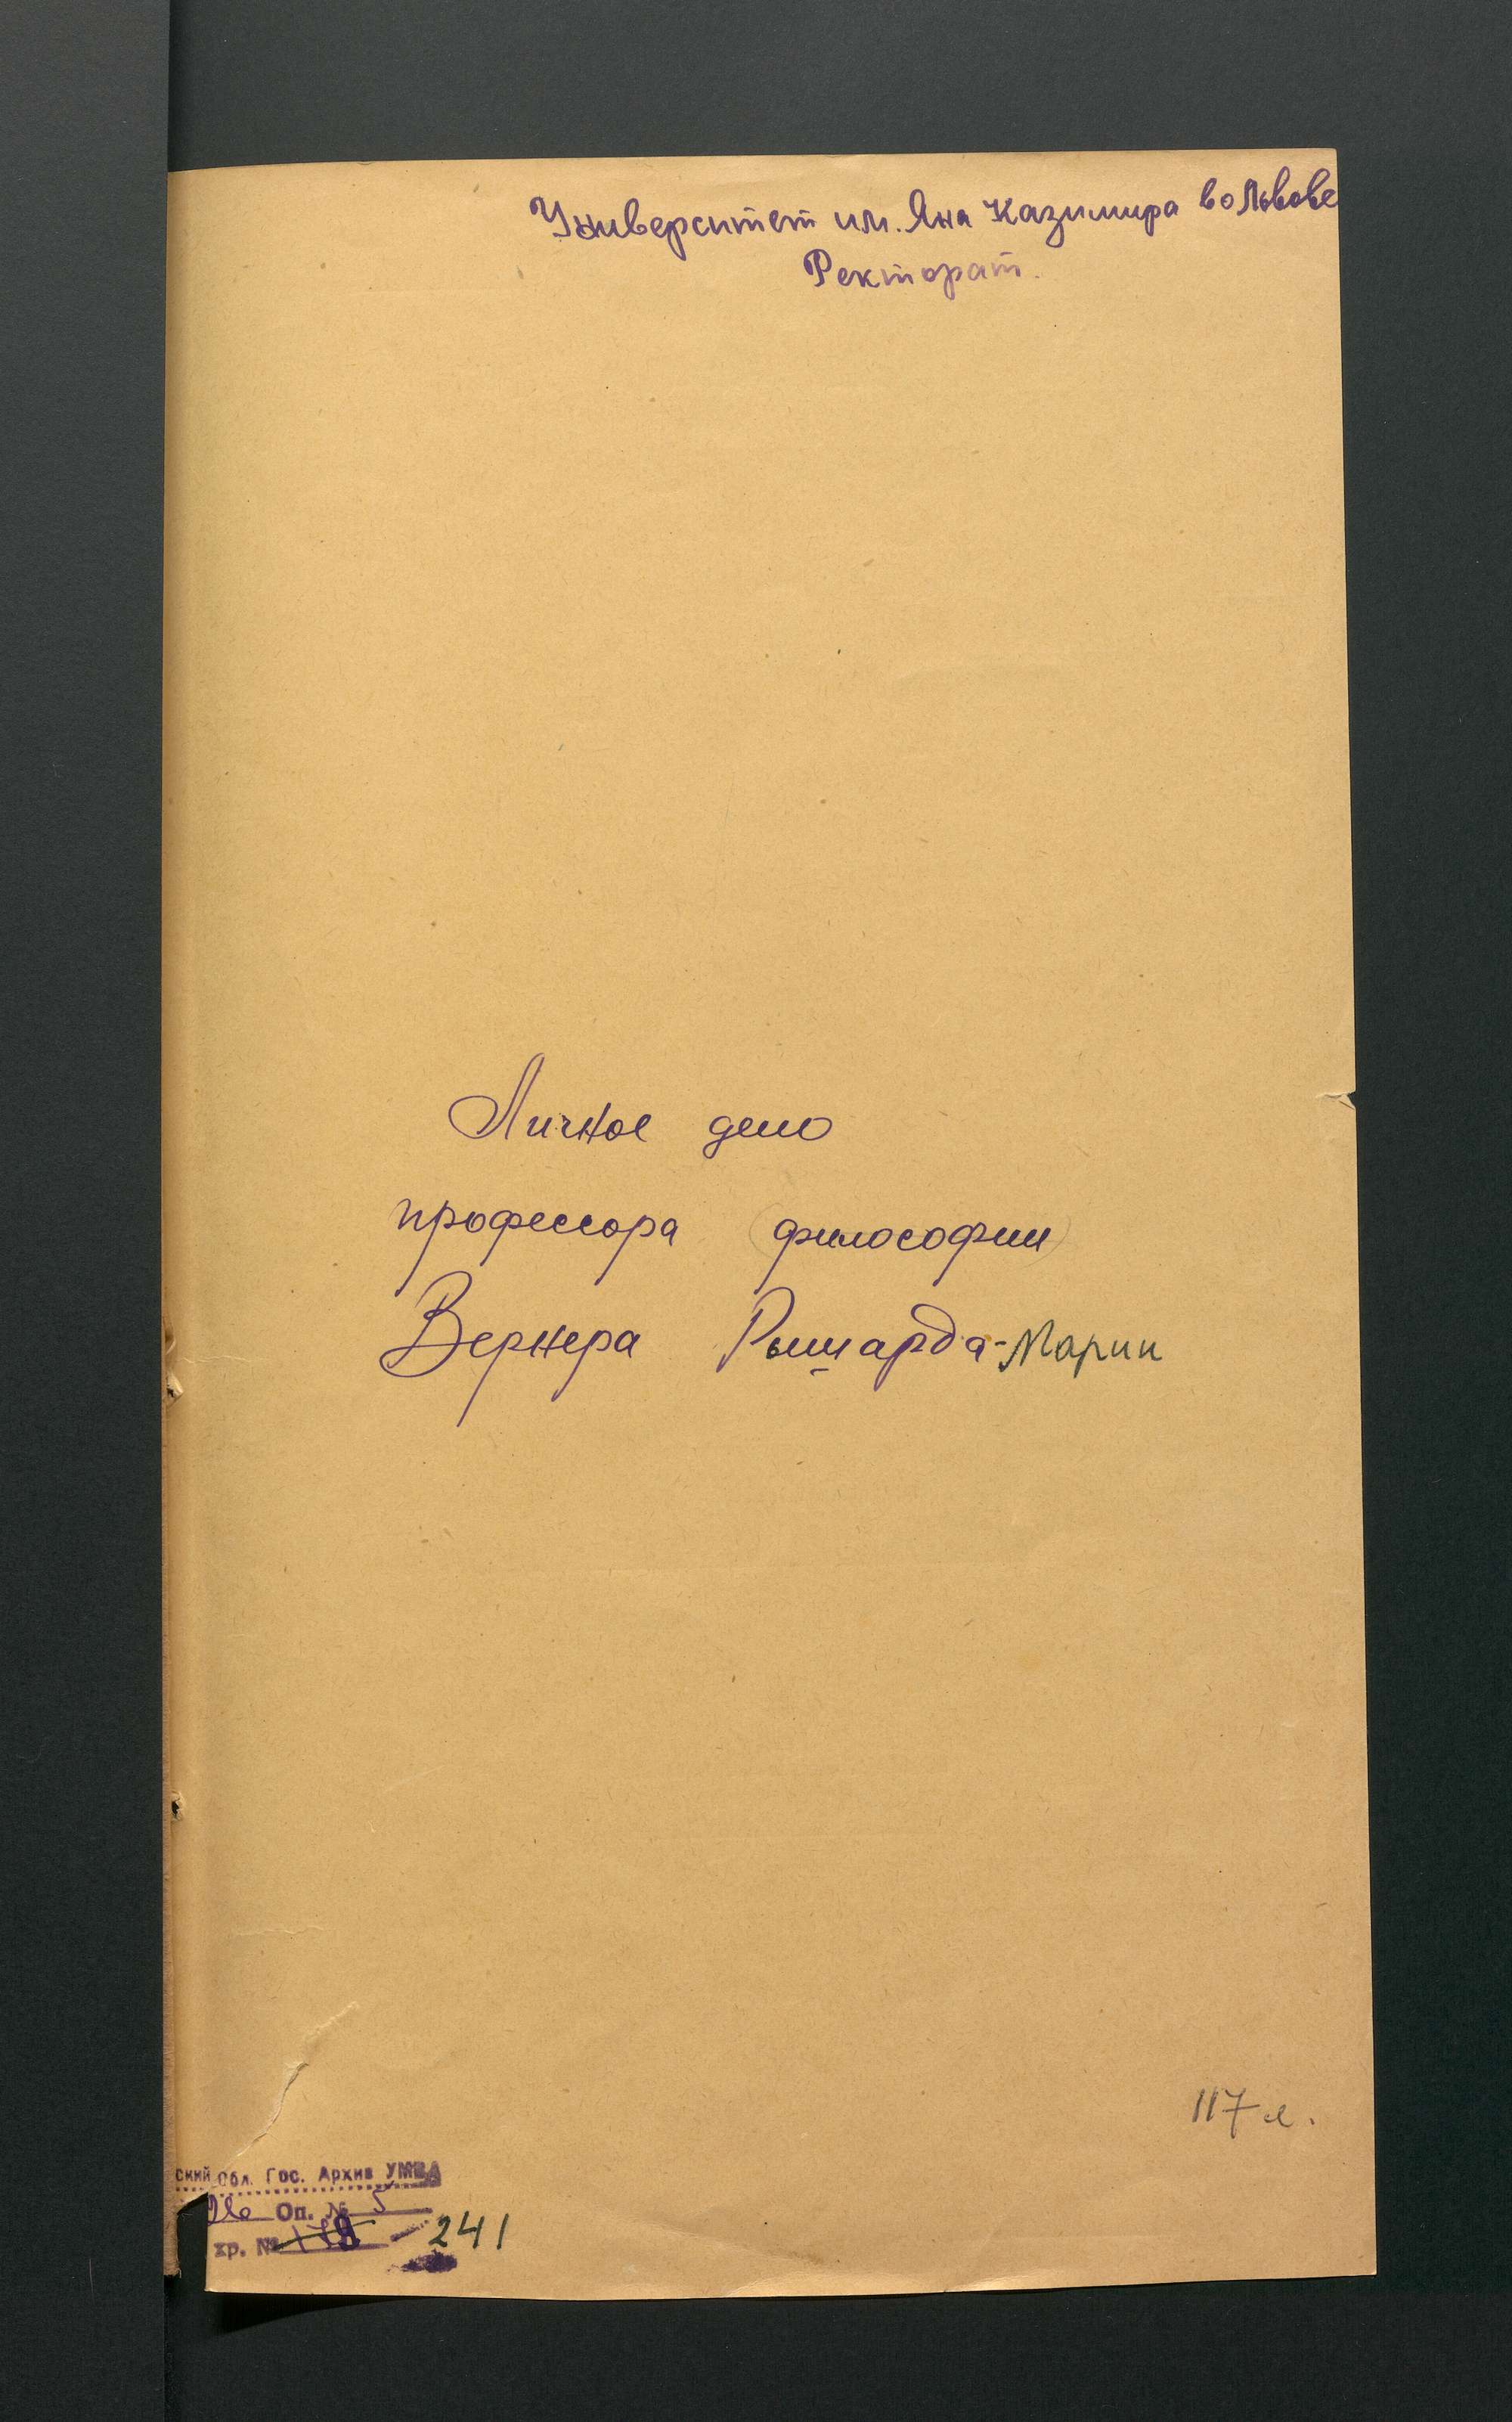 Университет им. Яна Казимира во Львове
Ректорат.
Личное дело
профессора (философии)
Вернера Рышарда-Марии
117 л.
ский Обл. Гос. Архив УМВД
26 Оп. № 5
хр. № 241